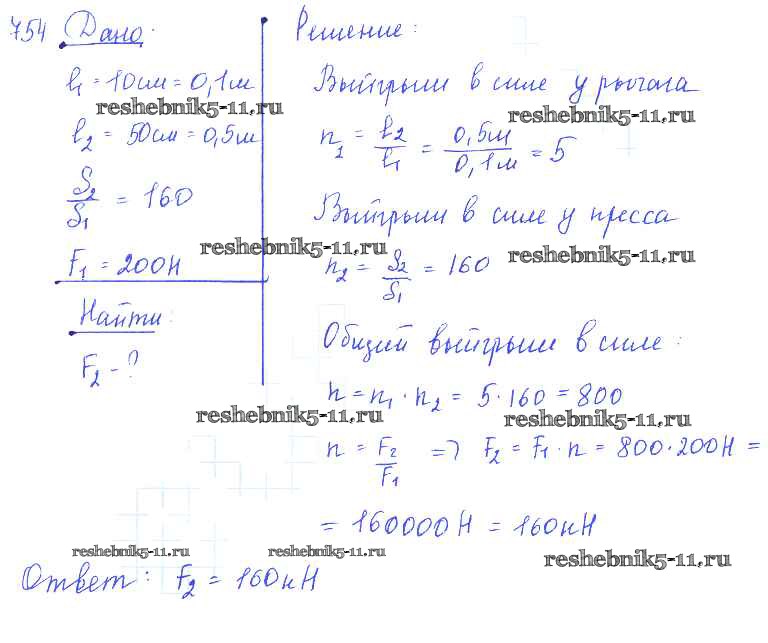 754 Дано:
l₁ = 10см = 0,1м
reshebnik5-11.ru
l₂ = 50см = 0,5м
S₂/S₁ = 160
reshebnik5-11.ru
F₁ = 200Н
Найти:
F₂ - ?
Решение:
Выигрыш в силе у рычага
reshebnik5-11.ru
n₁ = l₂/l₁ = 0,5м/0,1м = 5
Выигрыш в силе у пресса
reshebnik5-11.ru
n₂ = S₂/S₁ = 160
Общий выигрыш в силе:
n = n₁ · n₂ = 5 · 160 = 800
reshebnik5-11.ru
reshebnik5-11.ru
n = F₂/F₁ => F₂ = F₁ · n = 800 · 200Н =
= 160000Н = 160кН
reshebnik5-11.ru
reshebnik5-11.ru
reshebnik5-11.ru
Ответ: F₂ = 160кН